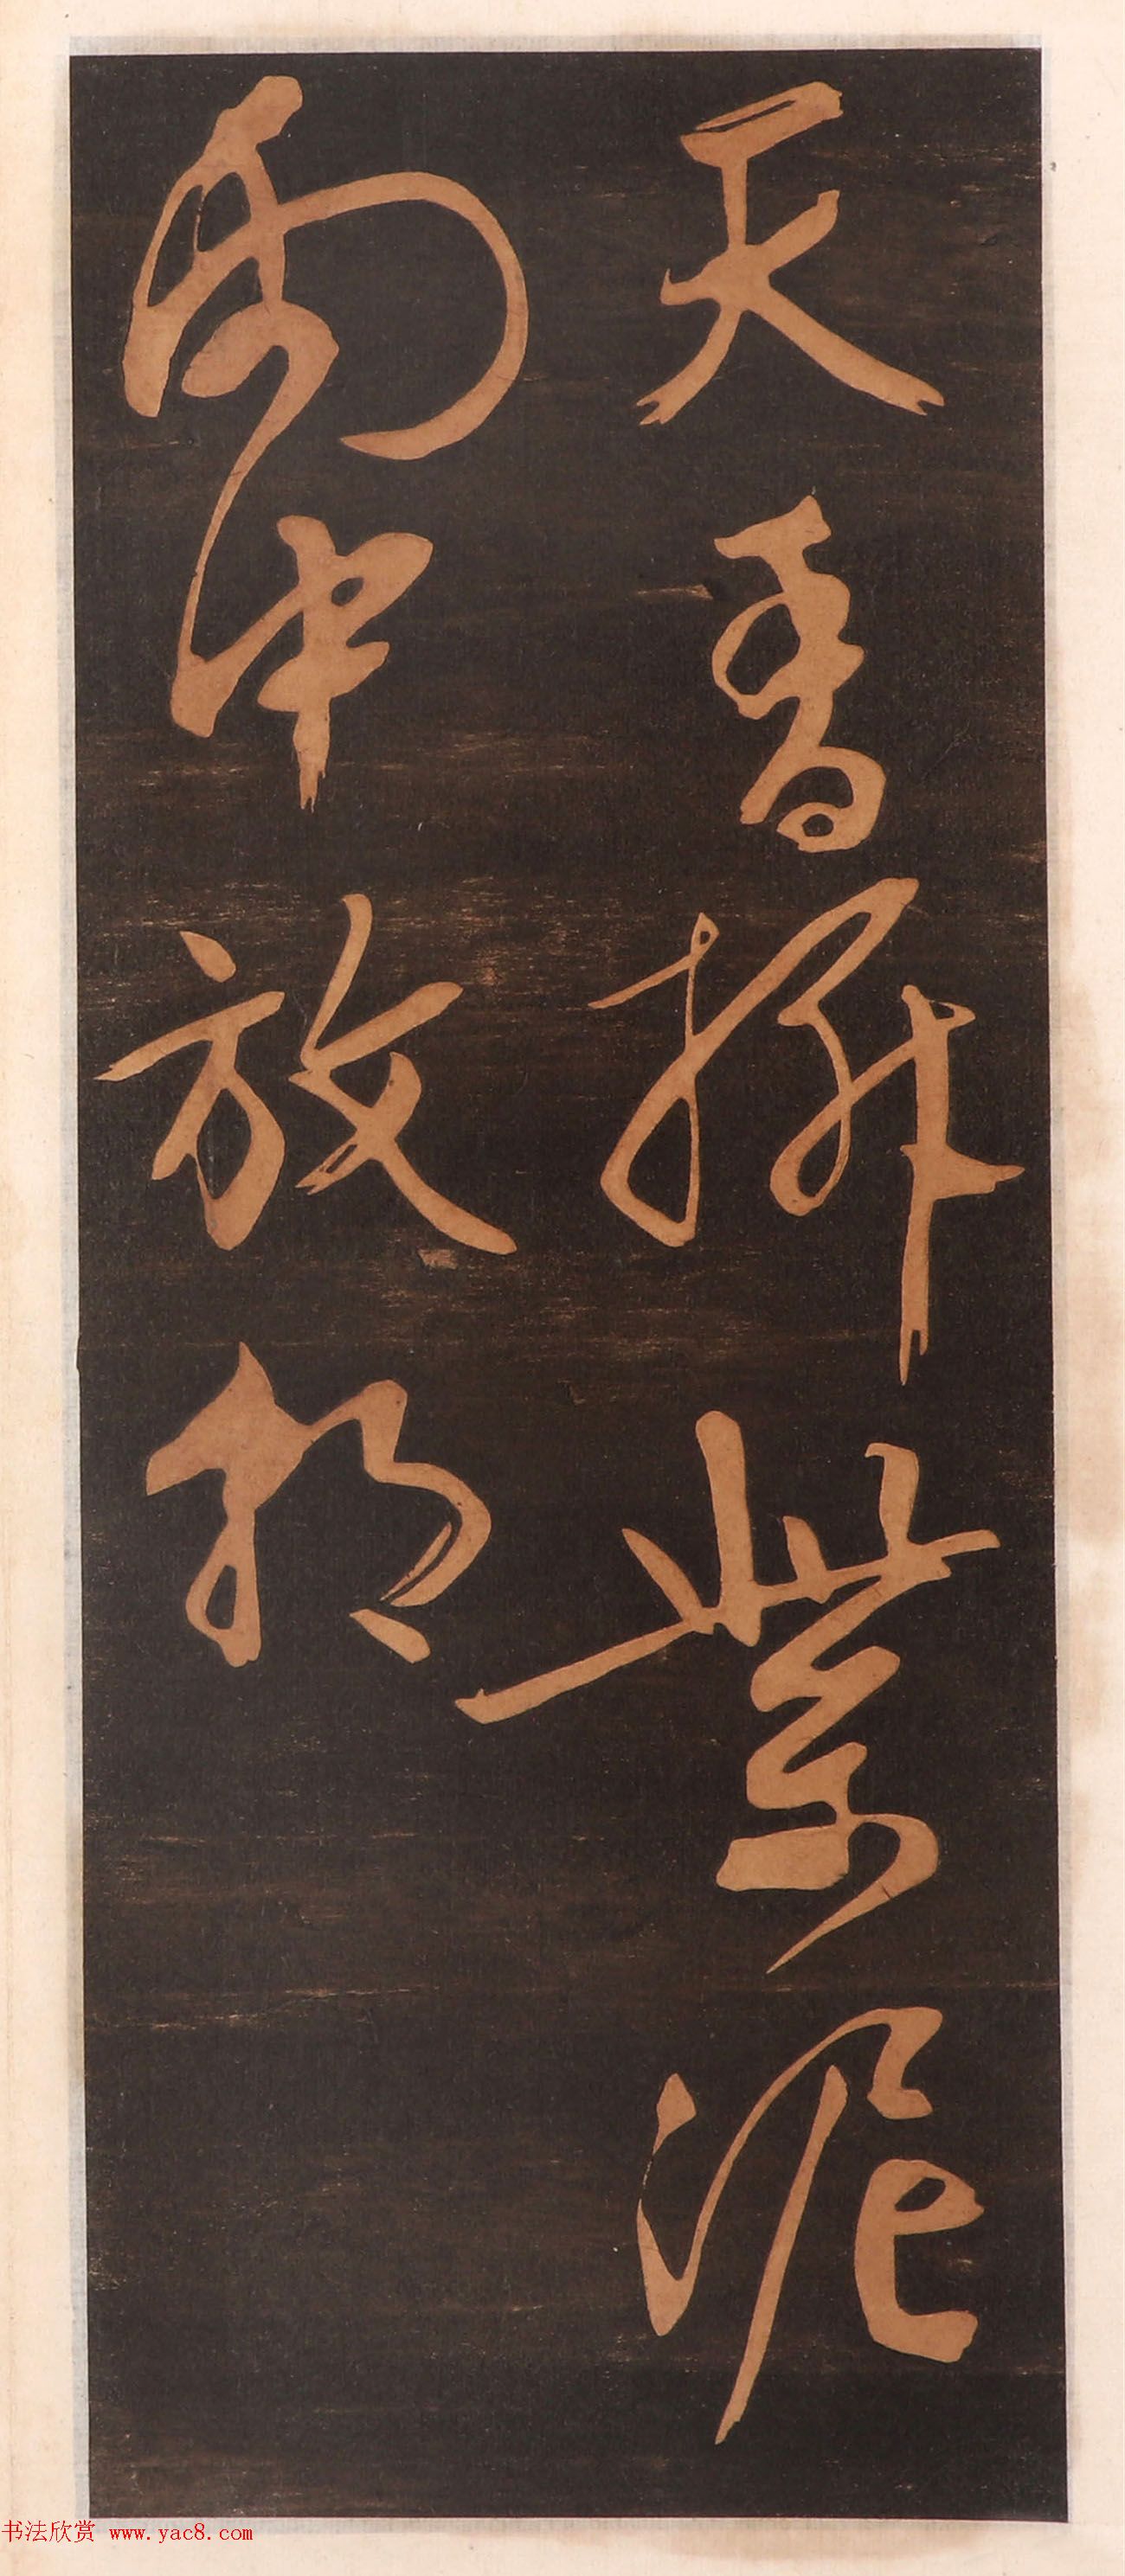 天香拆紫泥
雨中放朝
书法欣赏 www.yac8.com